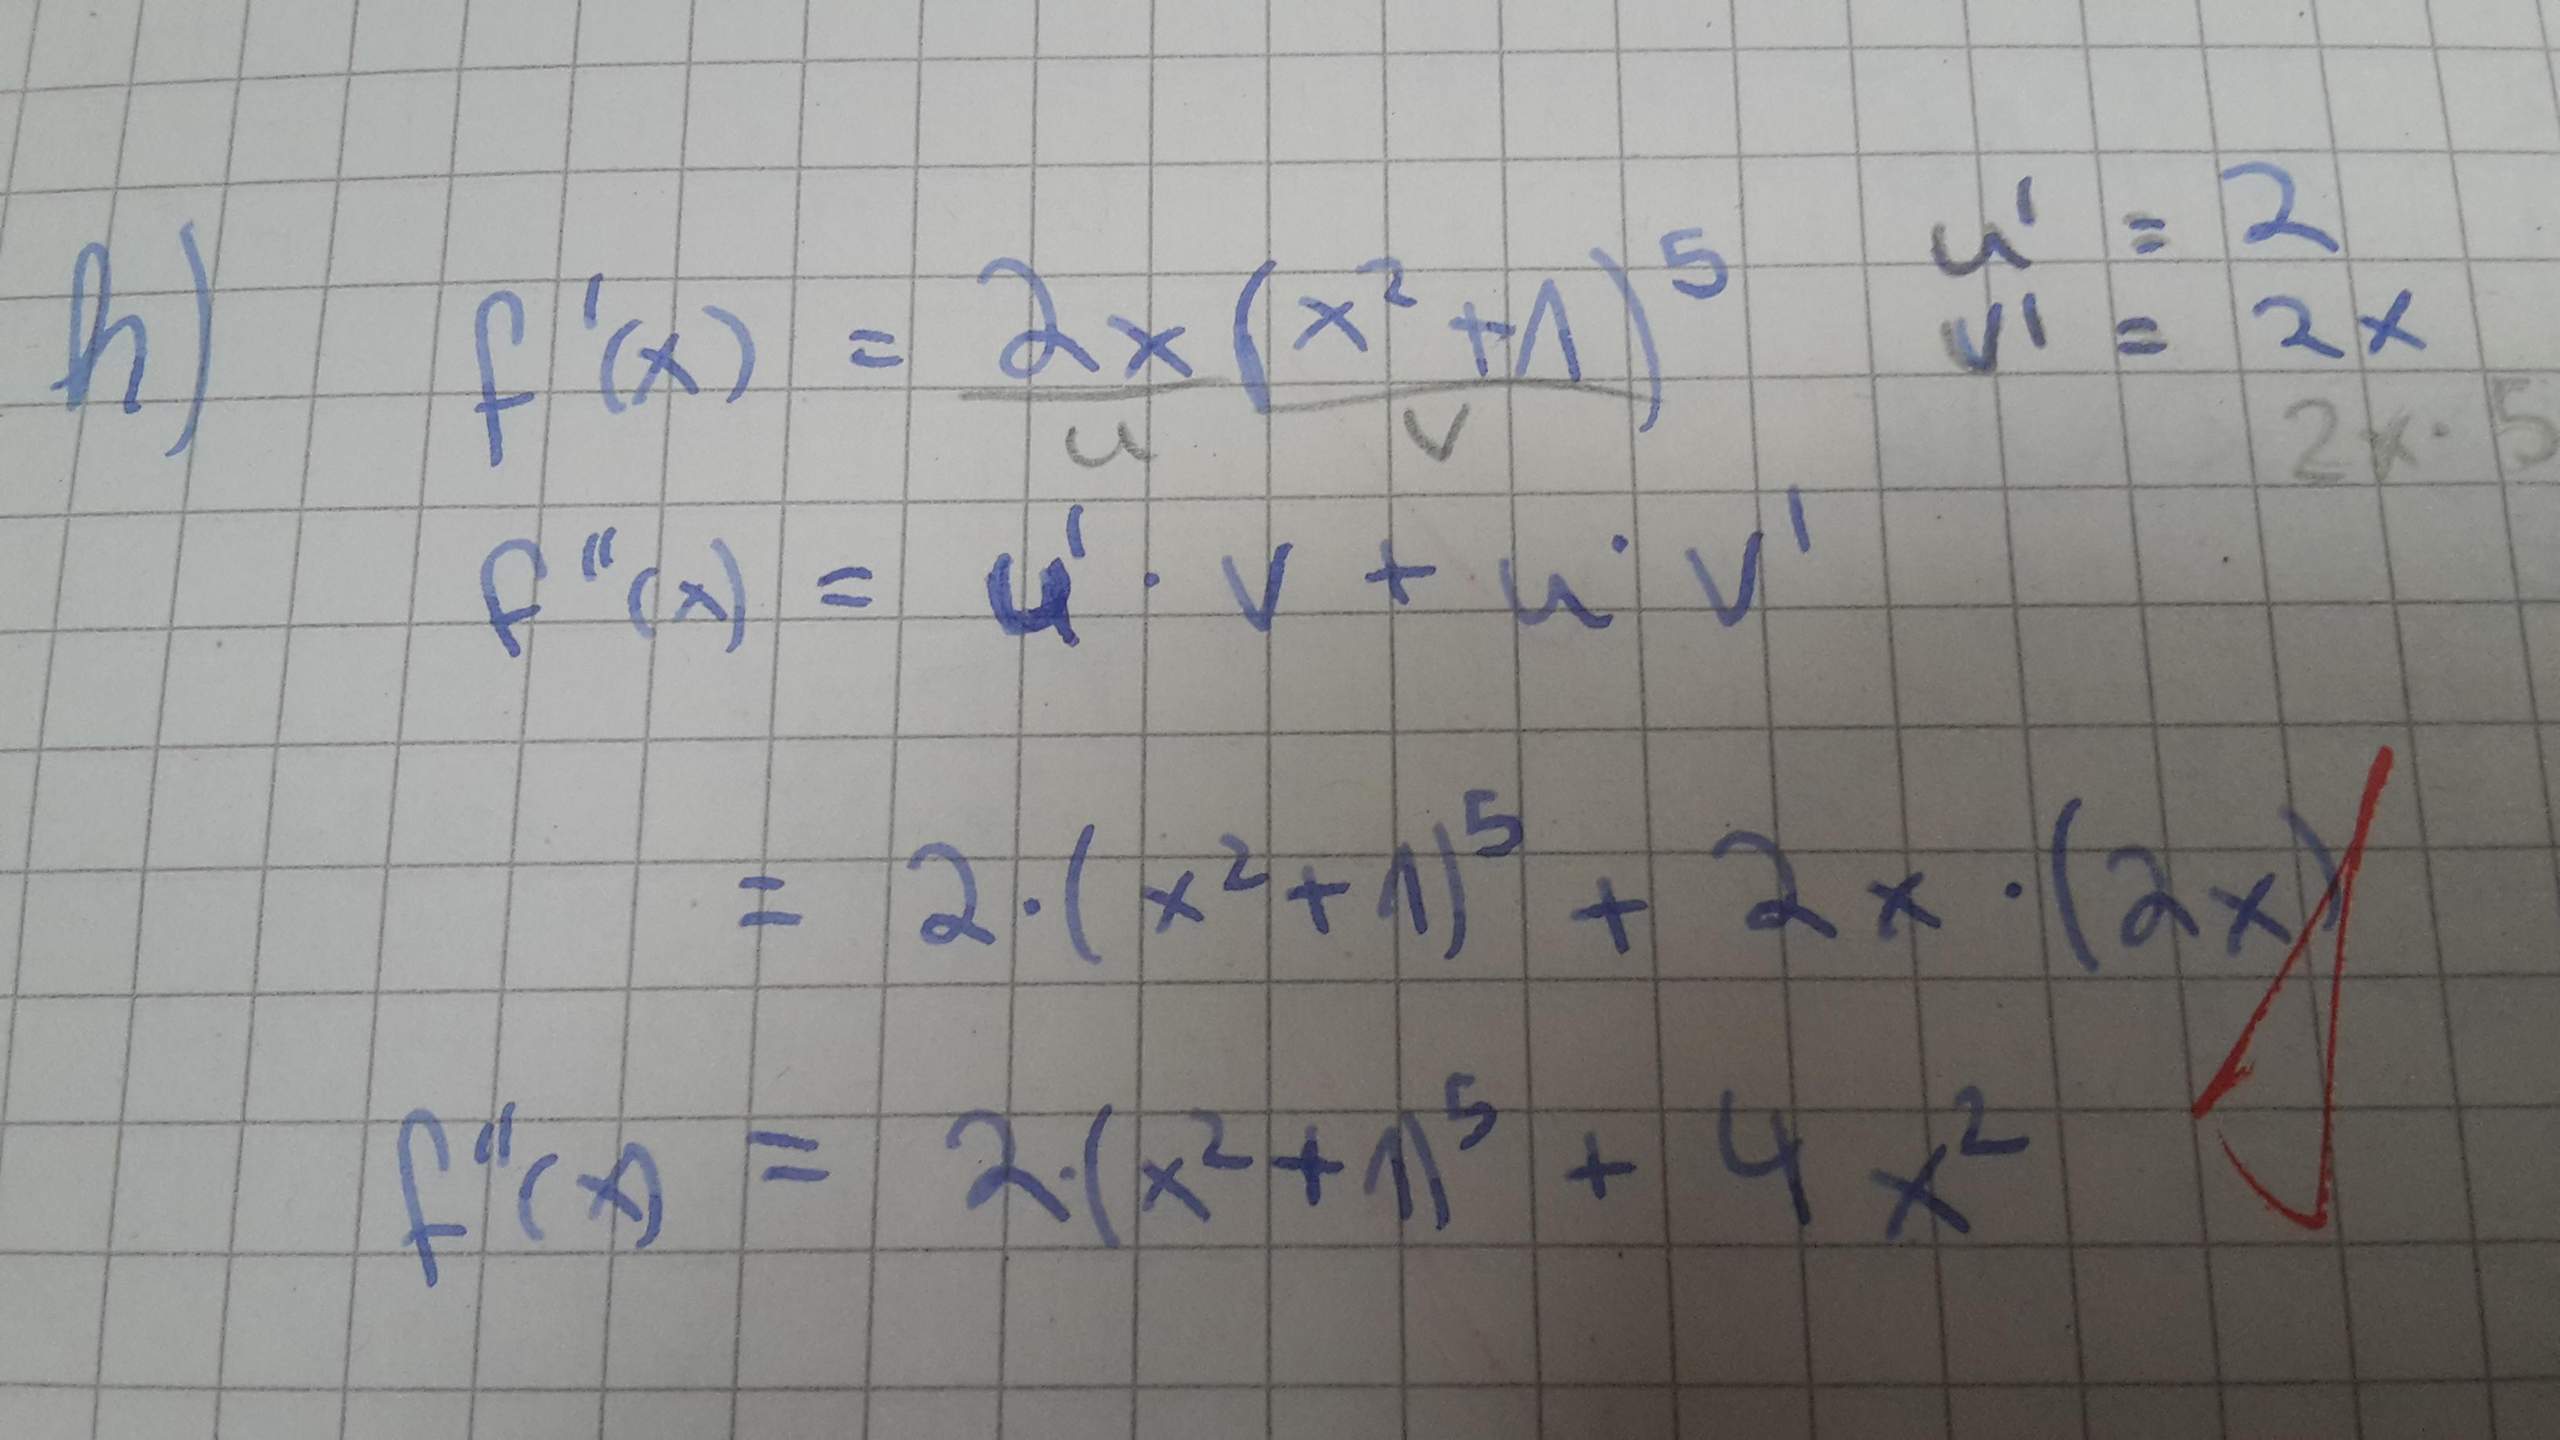 h) f'(x) = 2x (x²+1)⁵ u' = 2
u v v' = 2x
2x · 5
f''(x) = u' · v + u · v'
= 2·(x²+1)⁵ + 2x · (2x)
f''(x) = 2·(x²+1)⁵ + 4x²